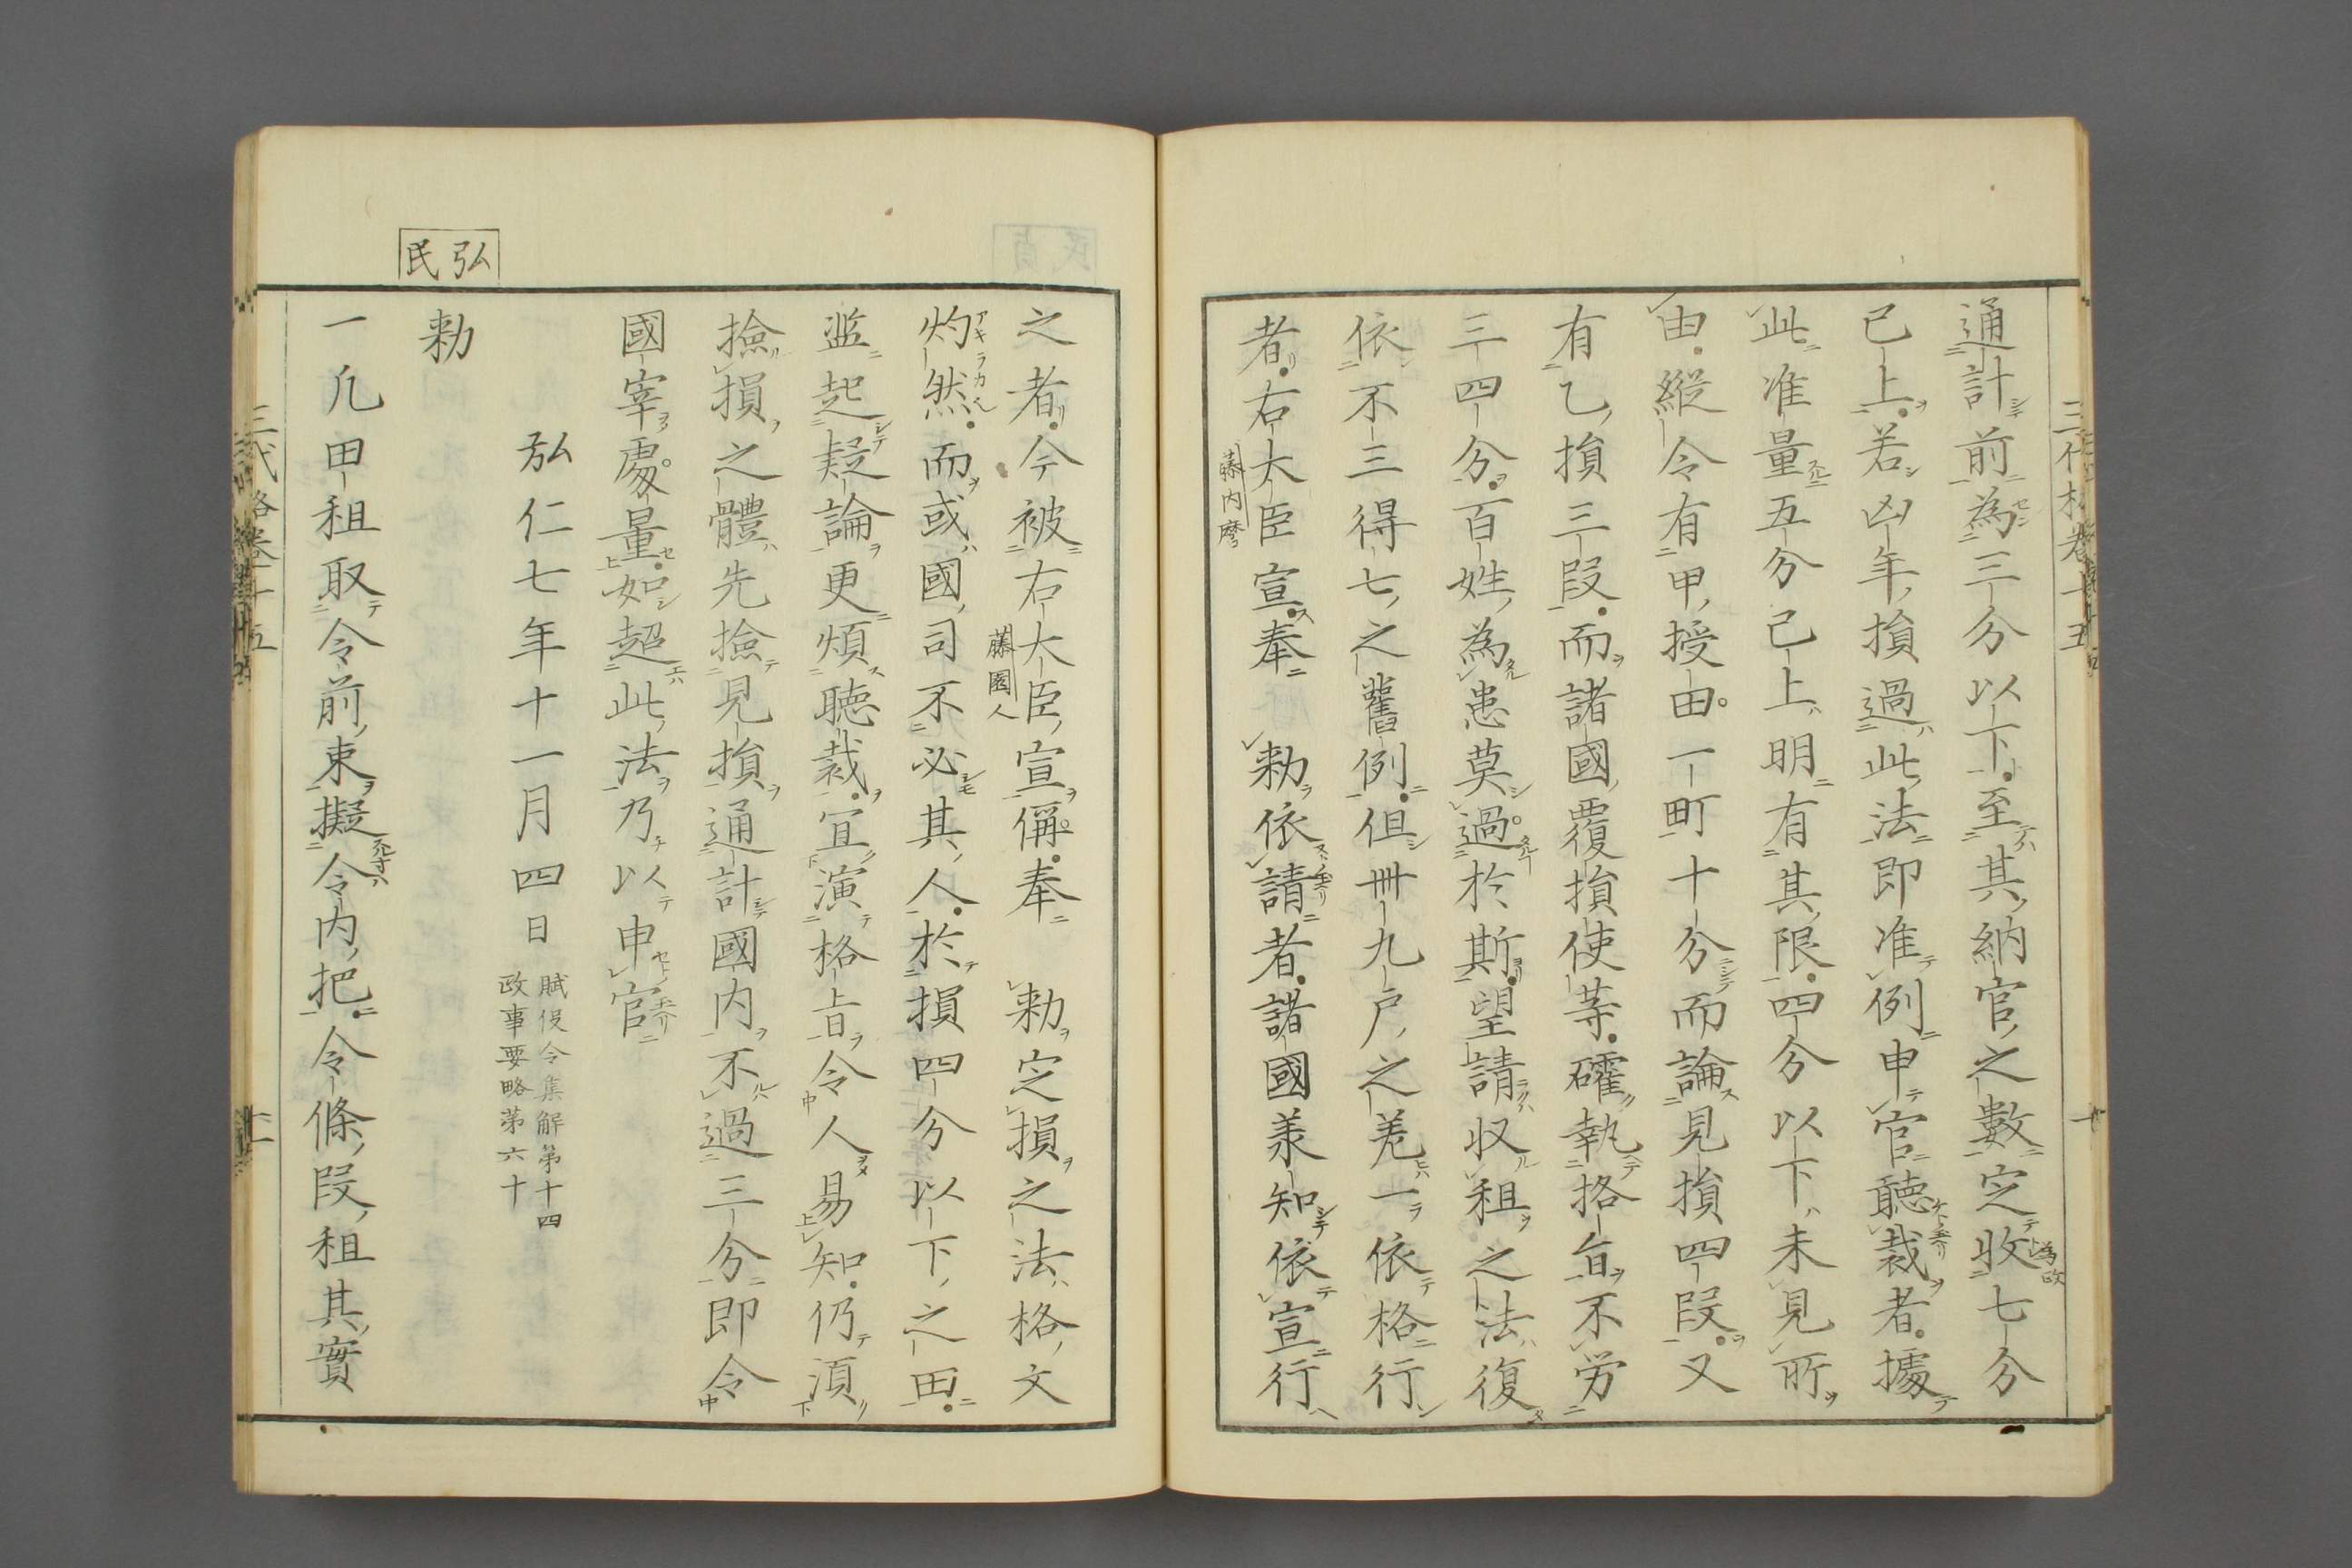 通計前為三分以下至其納官之數定收七分
已上若凶年損過此法即准例申官聽裁者據
此准量五分已上明有其限四分以下未見所
由縱令有甲授田一町十分而論見損四段又
有乙損三段而諸國覆損使等確執格旨不労
三四分百姓為患莫過於斯望請収租之法復
依不三得七之舊例但卌九戶之差一依格行
者右大臣宣奉　勅依請者諸國兼知依宣行
藤内麿
之者今被右大臣宣偁奉　勅定損之法格文
藤園人
灼然而或國司不必其人於損四分以下之田
濫起疑論更煩聽裁宜演格旨令人易知仍須
撿損之體先撿見損通計國内不過三分即令
國宰處量如超此法乃以申官
弘仁七年十一月四日
賦役令集解第十四
政事要略第六十
弘民
勅
一凡田租取令前束擬令内把令條段租其實